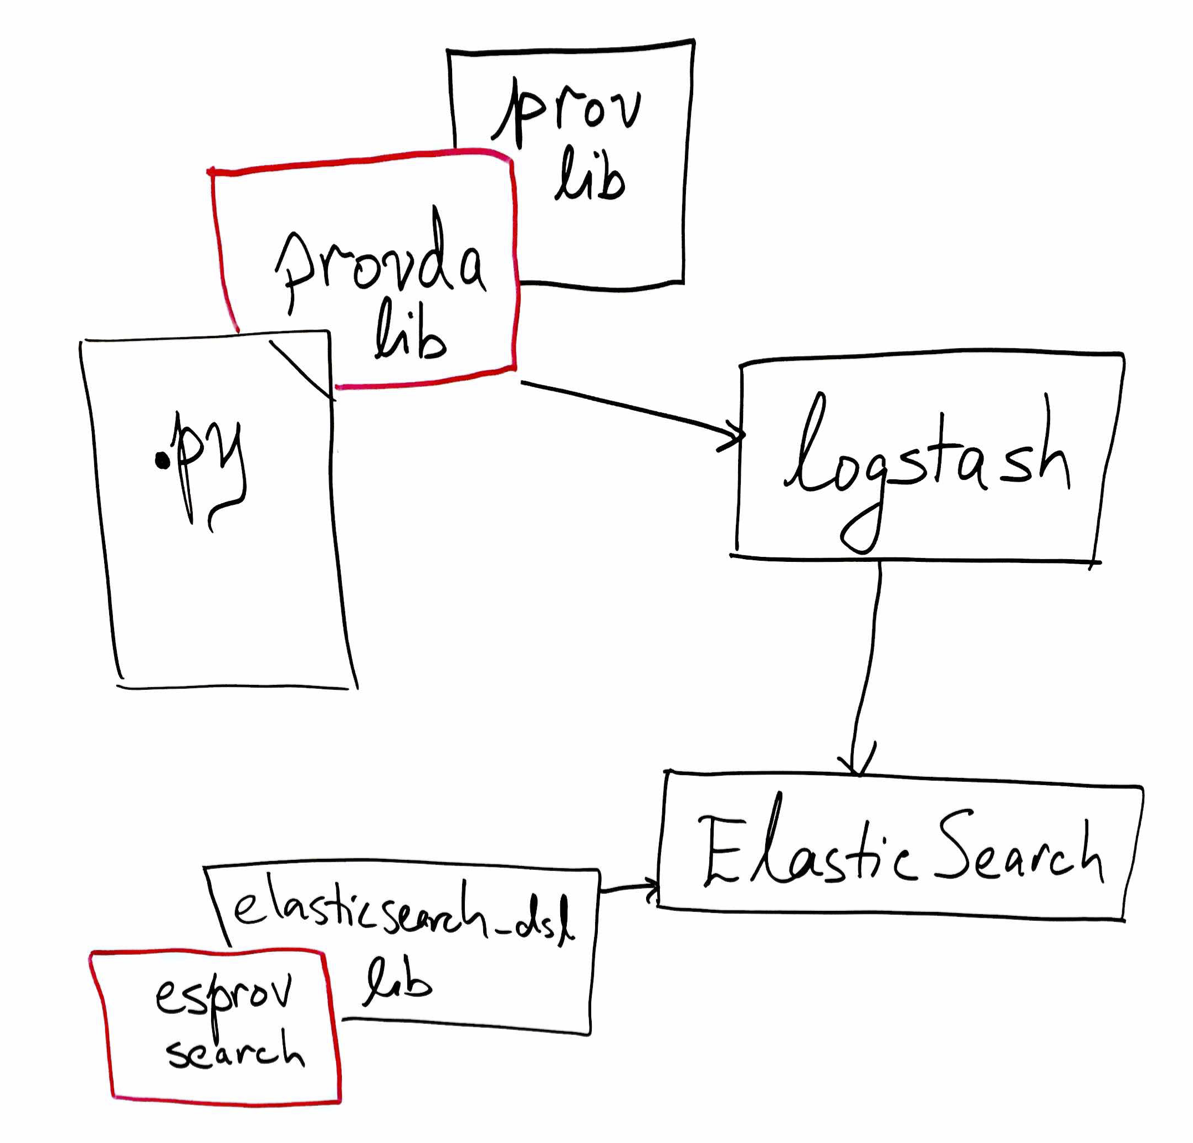 prov
lib
provda
lib
.py
logstash
ElasticSearch
elasticsearch_dsl
lib
esprov
search